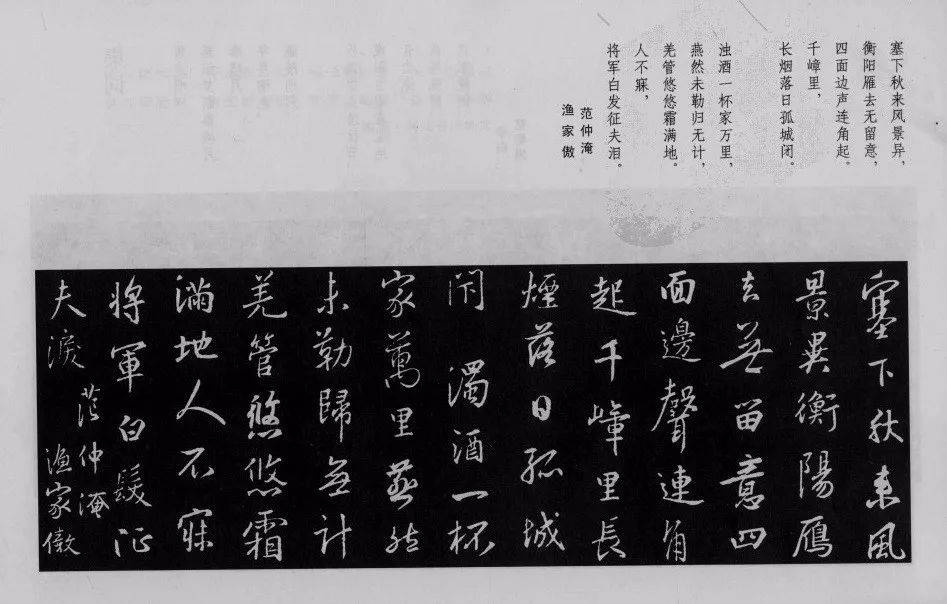 塞下秋来风景异，
衡阳雁去无留意，
四面边声连角起。
千嶂里，
长烟落日孤城闭。
浊酒一杯家万里，
燕然未勒归无计，
羌管悠悠霜满地。
人不寐，
将军白发征夫泪。
范仲淹
渔家傲
塞下秋来風
景異衡陽鴈
去無留意四
面邊聲連角
起千嶂里長
煙落日孤城
閇濁酒一杯
家萬里燕然
未勒歸無計
羌管悠悠霜
滿地人不寐
將軍白髮征
夫淚
范仲淹
漁家傲